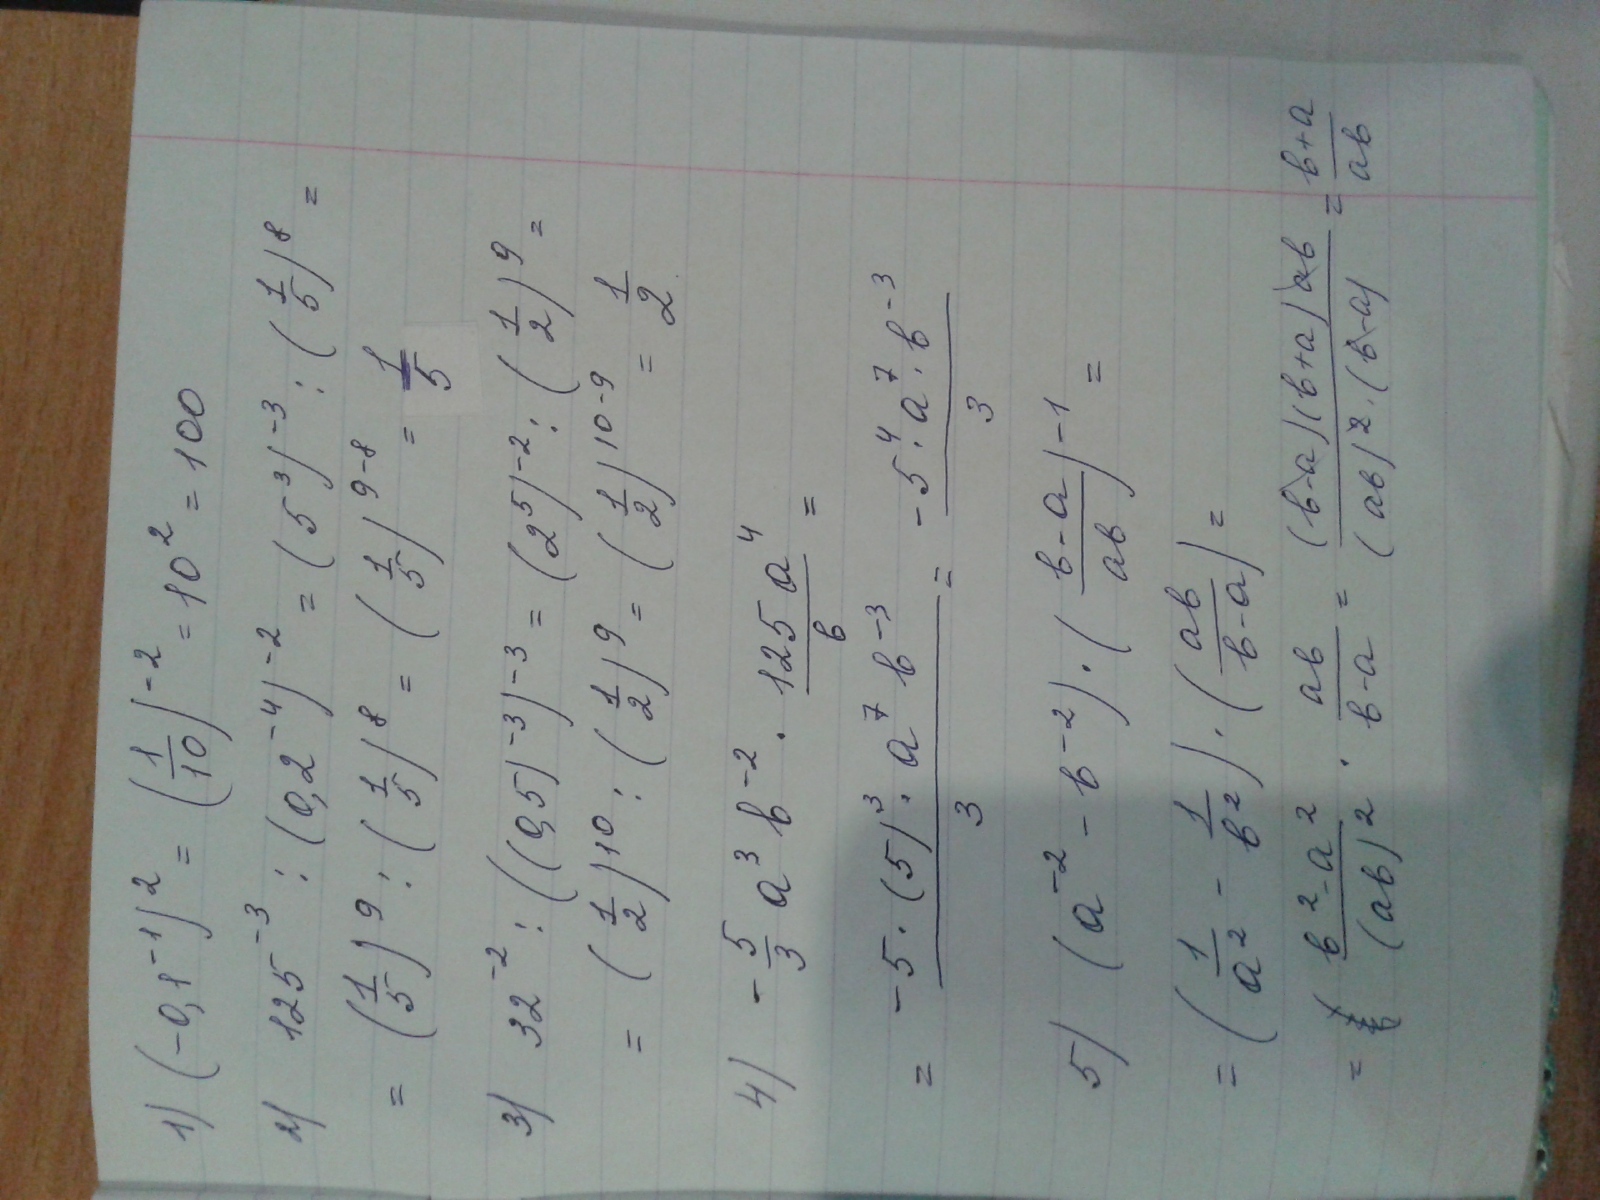 1) (-0,1⁻¹)² = (1/10)⁻² = 10² = 100
2) 125⁻³ : (0,2⁻⁴)⁻² = (5³)⁻³ : (1/5)⁸ =
= (1/5)⁹ : (1/5)⁸ = (1/5)⁹⁻⁸ = 1/5
3) 32⁻² : ((0,5)⁻³)⁻³ = (2⁵)⁻² : (1/2)⁹ =
= (1/2)10 : (1/2)⁹ = (1/2)10-9 = 1/2
4) -5/3 a³ b⁻² · 125a⁴/b =
= -5·(5)³·a⁷ b⁻³/3 = -5⁴·a⁷·b⁻³/3
5) (a⁻² - b⁻²)·(b-a/ab)-1 =
= (1/a² - 1/b²)·(ab/b-a) =
= b²-a²/(ab)² · ab/b-a = (b-a)(b+a)ab/(ab)²·(b-a) = b+a/ab